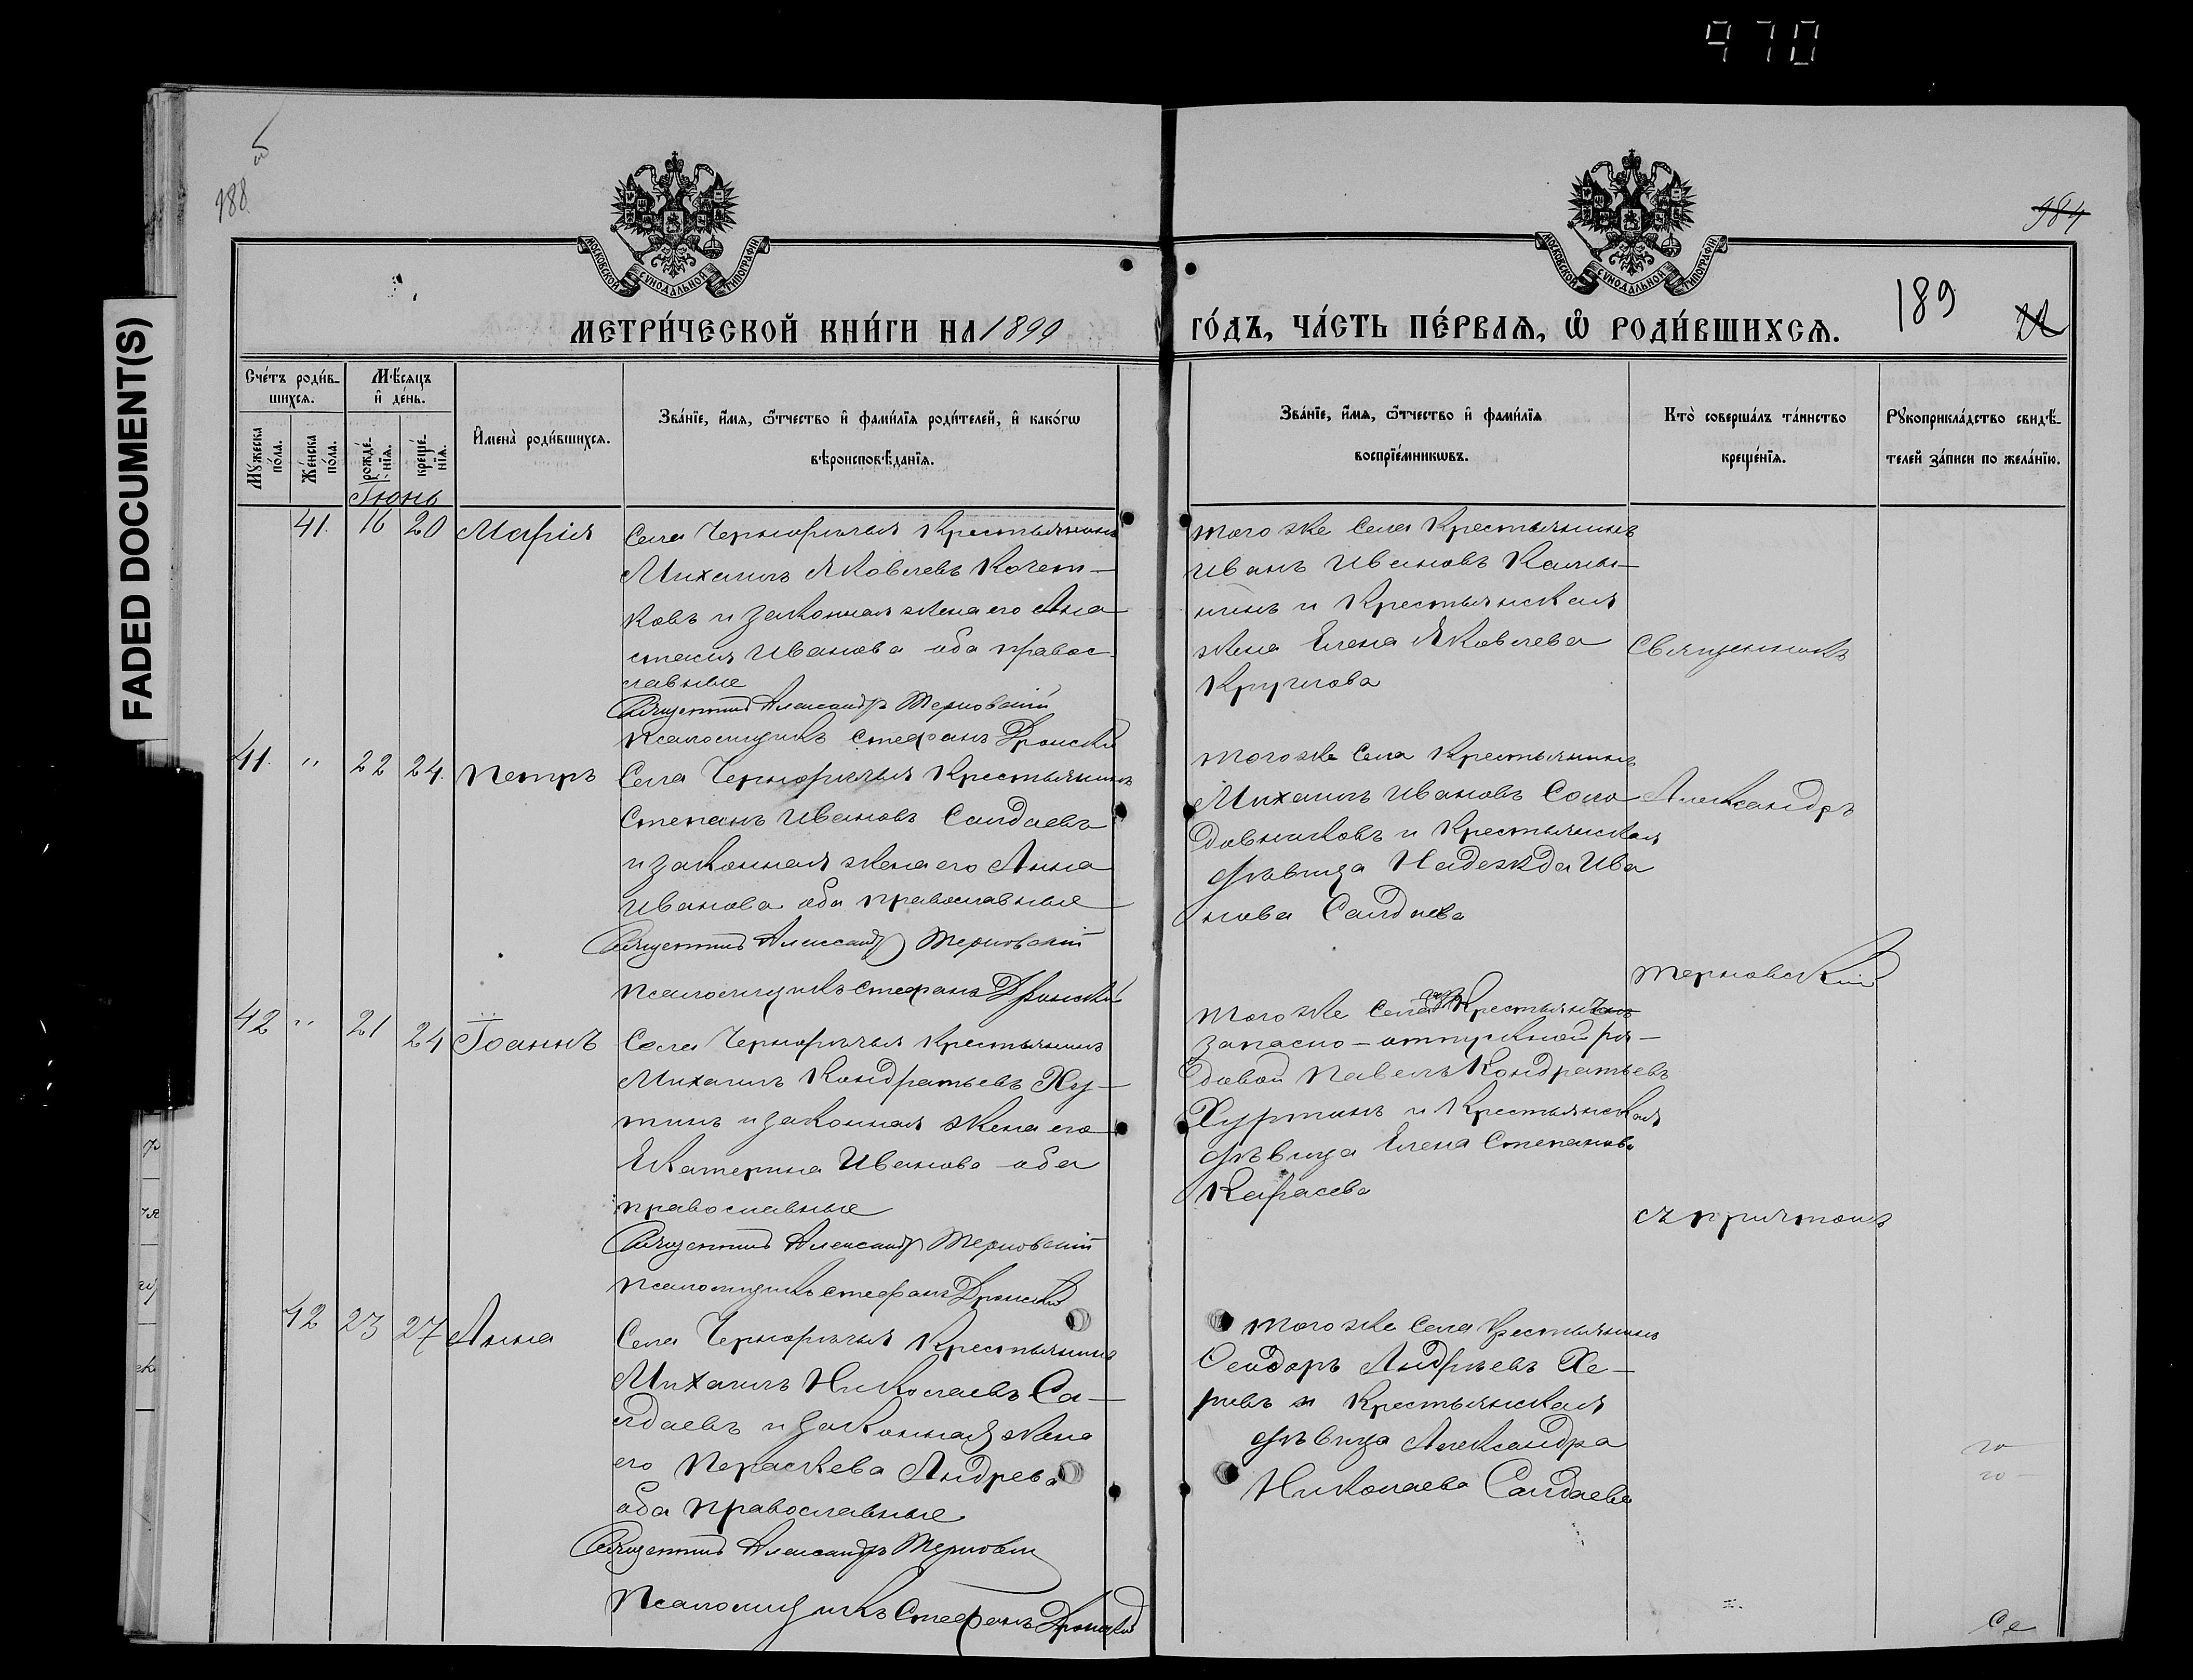 970
FADED DOCUMENT(S)
188
984
189
МОСКОВСКОЙ СѴНОДАЛЬНОЙ ТИПОГРАФІИ
МОСКОВСКОЙ СѴНОДАЛЬНОЙ ТИПОГРАФІИ
МЕТРИ́ЧЕСКОЙ КНИ́ГИ НА 1899
ГО́ДЪ, ЧА́СТЬ ПЕ́РВАѦ, Ѡ҆ РОДИ́ВШИХСѦ.
Сче́тъ роди́в-
шихсѧ.
Мѣ́сѧцъ
и҆ де́нь.
Мꙋ́жеска по́ла.
Же́нска по́ла.
рожде́нїѧ.
креще́нїѧ.
И҆мена̀ роди́вшихсѧ.
Зва́нїе, и҆́мѧ, ѻ҆́тчество и҆ фами́лїѧ роди́телей, и҆ како́гѡ
вѣроисповѣ́данїѧ.
Зва́нїе, и҆́мѧ, ѻ҆́тчество и҆ фами́лїѧ
воспрїе́мникѡвъ.
Кто̀ соверша́лъ та́инство
креще́нїѧ.
Рꙋкоприкла́дство свидѣ́-
телей за́писи по жела́нїю.
Іюнь
41. 16 20 Марія
Села Чернорѣчья Крестьянинъ
Михаилъ Яковлевъ Кочет-
ковъ и законная жена его Ана
стасія Иванова оба правос-
лавные
Священникъ Александръ Терновскій
Псаломщикъ Стефанъ Дронскій
Того же Села Крестьянинъ
Иванъ Ивановъ Калин-
нинъ и Крестьянская
жена Елена Яковлева
Круглова
Священникъ
41. " 22 24. Петръ
Села Чернорѣчья Крестьянинъ
Степанъ Ивановъ Салдаевъ
и законная жена его Анна
Иванова оба православные
Священникъ Александръ Терновскій
Псаломщикъ Стефанъ Дронскій
Того же Села Крестьянинъ
Михаилъ Ивановъ Соло
довниковъ и Крестьянская
дѣвица Надежда Ива
нова Салдаева
Александръ
Терновскій
42 " 21 24 Іоаннъ
Села Чернорѣчья Крестьянинъ
Михаилъ Кондратьевъ Ху-
тинъ и законная жена его
Екатерина Иванова оба
православные
Священникъ Александръ Терновскій
Псаломщикъ Стефанъ Дронскій
Того же Села Крестьянинъ
запасно-отпускной ря-
довой Павелъ Кондратьевъ
Хуртинъ и Крестьянская
дѣвица Елена Степанова
Карасева
съ причтомъ
42 23 27 Анна
Села Чернорѣчья Крестьянинъ
Михаилъ Николаевъ Са-
лдаевъ и законная жена
его Параскева Андрева
оба православные
Священникъ Александръ Терновскій
Псаломщикъ Стефанъ Дронскій
Того же Села Крестьянинъ
Сидоръ Андреевъ Хе-
ровъ и Крестьянская
дѣвица Александра
Николаева Салдаева